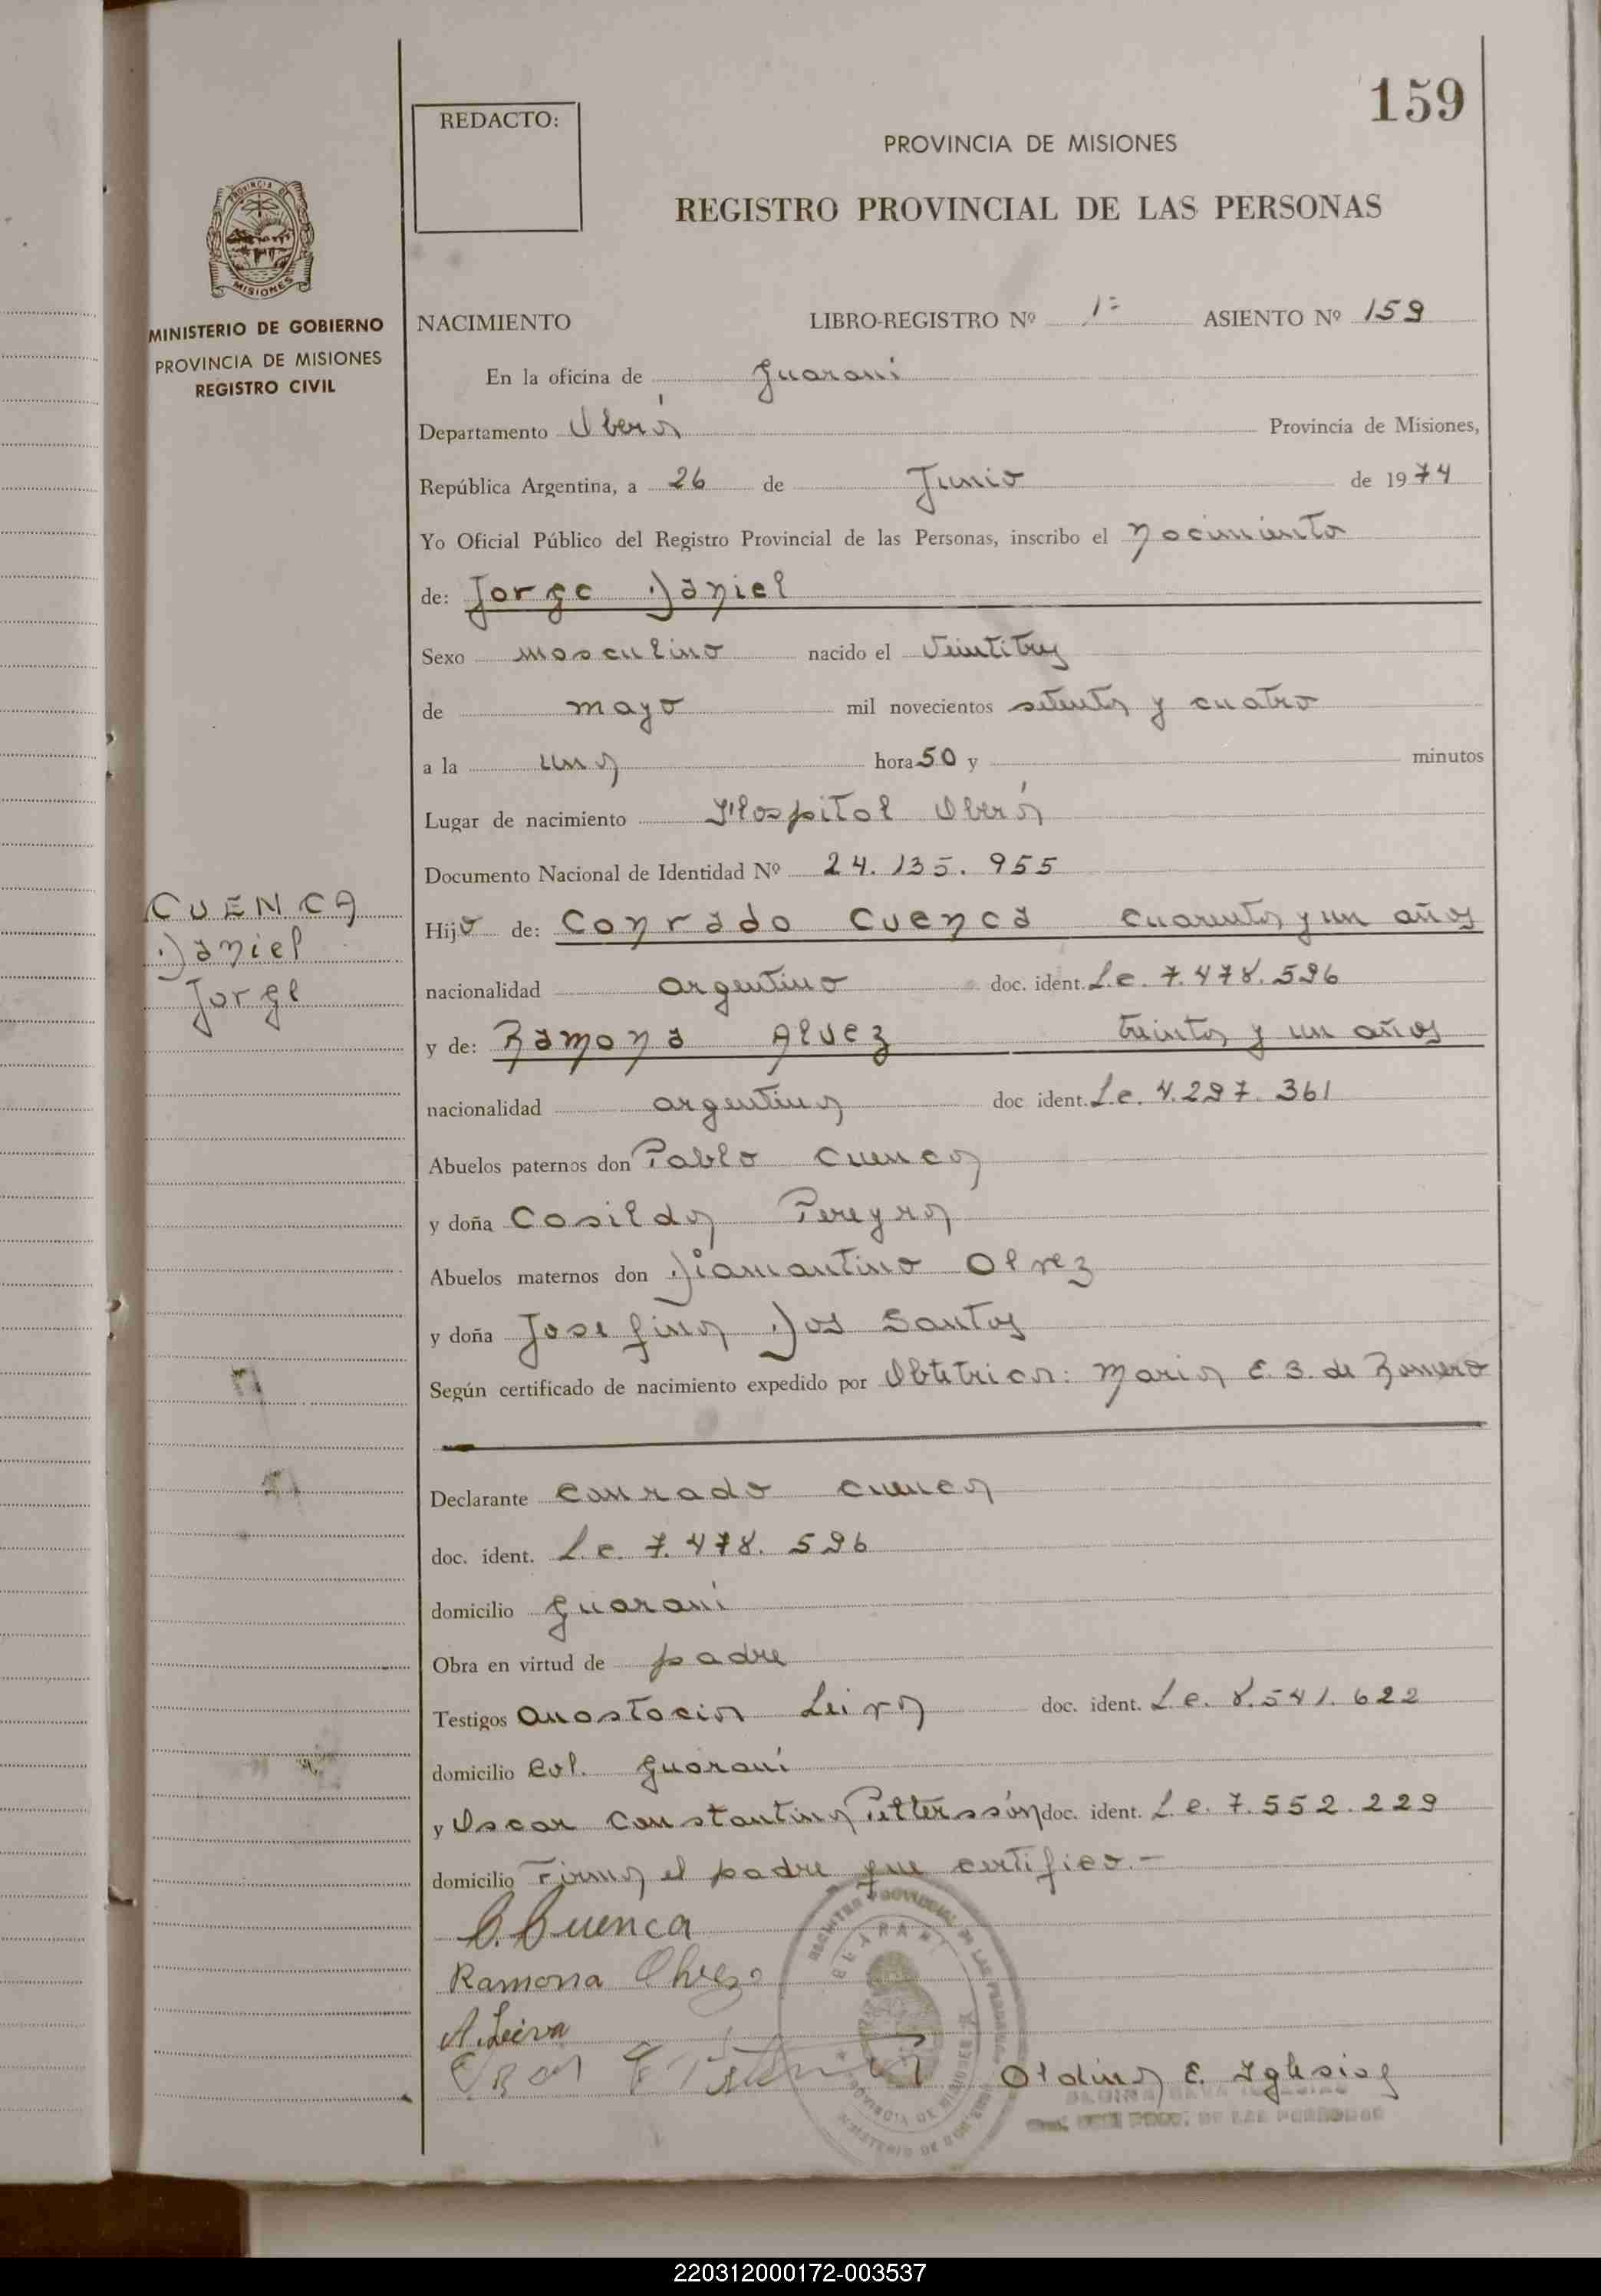 159
REDACTO:
PROVINCIA DE MISIONES
REGISTRO PROVINCIAL DE LAS PERSONAS
PROVINCIA DE
MISIONES
MINISTERIO DE GOBIERNO
PROVINCIA DE MISIONES
REGISTRO CIVIL
NACIMIENTO LIBRO-REGISTRO Nº 1= ASIENTO Nº 159
En la oficina de Guaraní
Departamento Oberá Provincia de Misiones,
República Argentina, a 26 de Junio de 1974
Yo Oficial Público del Registro Provincial de las Personas, inscribo el nacimiento
de: Jorge Daniel
Sexo masculino nacido el Veintitres
de mayo mil novecientos setenta y cuatro
a la una hora 50 y minutos
Lugar de nacimiento Hospital Oberá
Documento Nacional de Identidad Nº 24.135.955
CUENCA
Daniel
Jorge
Hijo de: Conrado Cuenca cuarenta y un años
nacionalidad argentino doc. ident. L.e. 7.478.596
y de: Ramona Alvez treinta y un años
nacionalidad argentina doc ident. L.e. 4.297.361
Abuelos paternos don Pablo Cuenca
y doña Casilda Pereyra
Abuelos maternos don Diamantino Alvez
y doña Josefina Dos Santos
Según certificado de nacimiento expedido por Obtetrica: Maria E. B. de Romero
Declarante Conrado Cuenca
doc. ident. L.e. 7.478.596
domicilio Guaraní
Obra en virtud de padre
Testigos Anastacia Leiva doc. ident. L.e. 8.541.622
domicilio Col. Guaraní
y Oscar Constantino Pettersson doc. ident. L.e. 7.552.229
domicilio Firma el padre que certifico.-
C. Cuenca
Ramona
A. Leiva
E. Iglesias
REGISTRO PROVINCIAL DE LAS PERSONAS
GUARANI
PROVINCIA DE MISIONES
MINISTERIO DE GOBIERNO
DE LAS PERSONAS
220312000172-003537